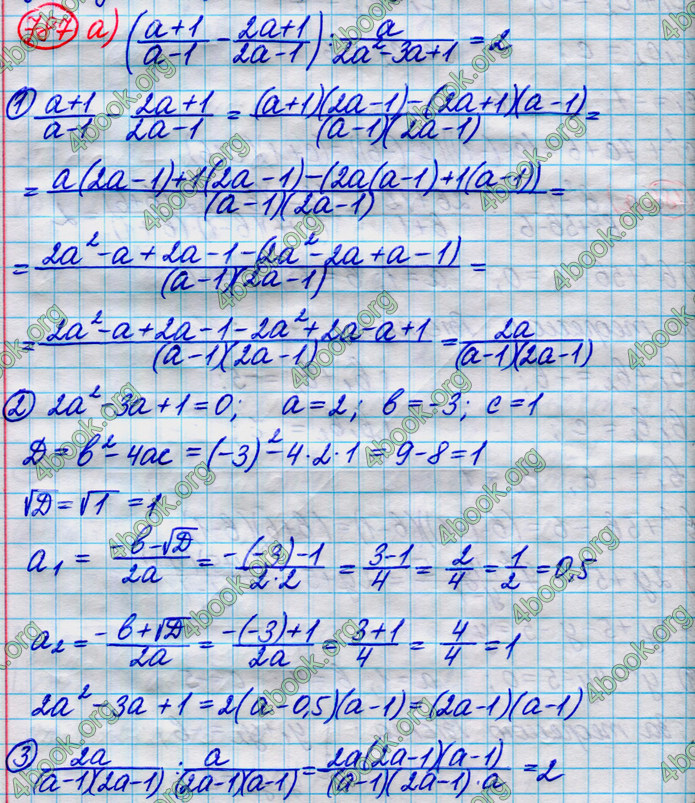 787 а) ((a+1)/(a-1) - (2a+1)/(2a-1)) : a/(2a²-3a+1) = 2
① (a+1)/(a-1) - (2a+1)/(2a-1) = ((a+1)(2a-1)-(2a+1)(a-1))/((a-1)(2a-1)) =
= (a(2a-1)+1(2a-1)-(2a(a-1)+1(a-1)))/((a-1)(2a-1)) =
= (2a²-a+2a-1-(2a²-2a+a-1))/((a-1)(2a-1)) =
= (2a²-a+2a-1-2a²+2a-a+1)/((a-1)(2a-1)) = 2a/((a-1)(2a-1))
② 2a²-3a+1=0; a=2; b=-3; c=1
D = b²-4ac = (-3)²-4·2·1 = 9-8=1
√D=√1 = 1
a₁ = (-b-√D)/2a = (-(-3)-1)/(2·2) = (3-1)/4 = 2/4 = 1/2 = 0,5
a₂ = (-b+√D)/2a = (-(-3)+1)/2a = (3+1)/4 = 4/4 = 1
2a²-3a+1=2(a-0,5)(a-1)=(2a-1)(a-1)
③ 2a/((a-1)(2a-1)) : a/((2a-1)(a-1)) = (2a(2a-1)(a-1))/((a-1)(2a-1)·a) = 2
4book.org